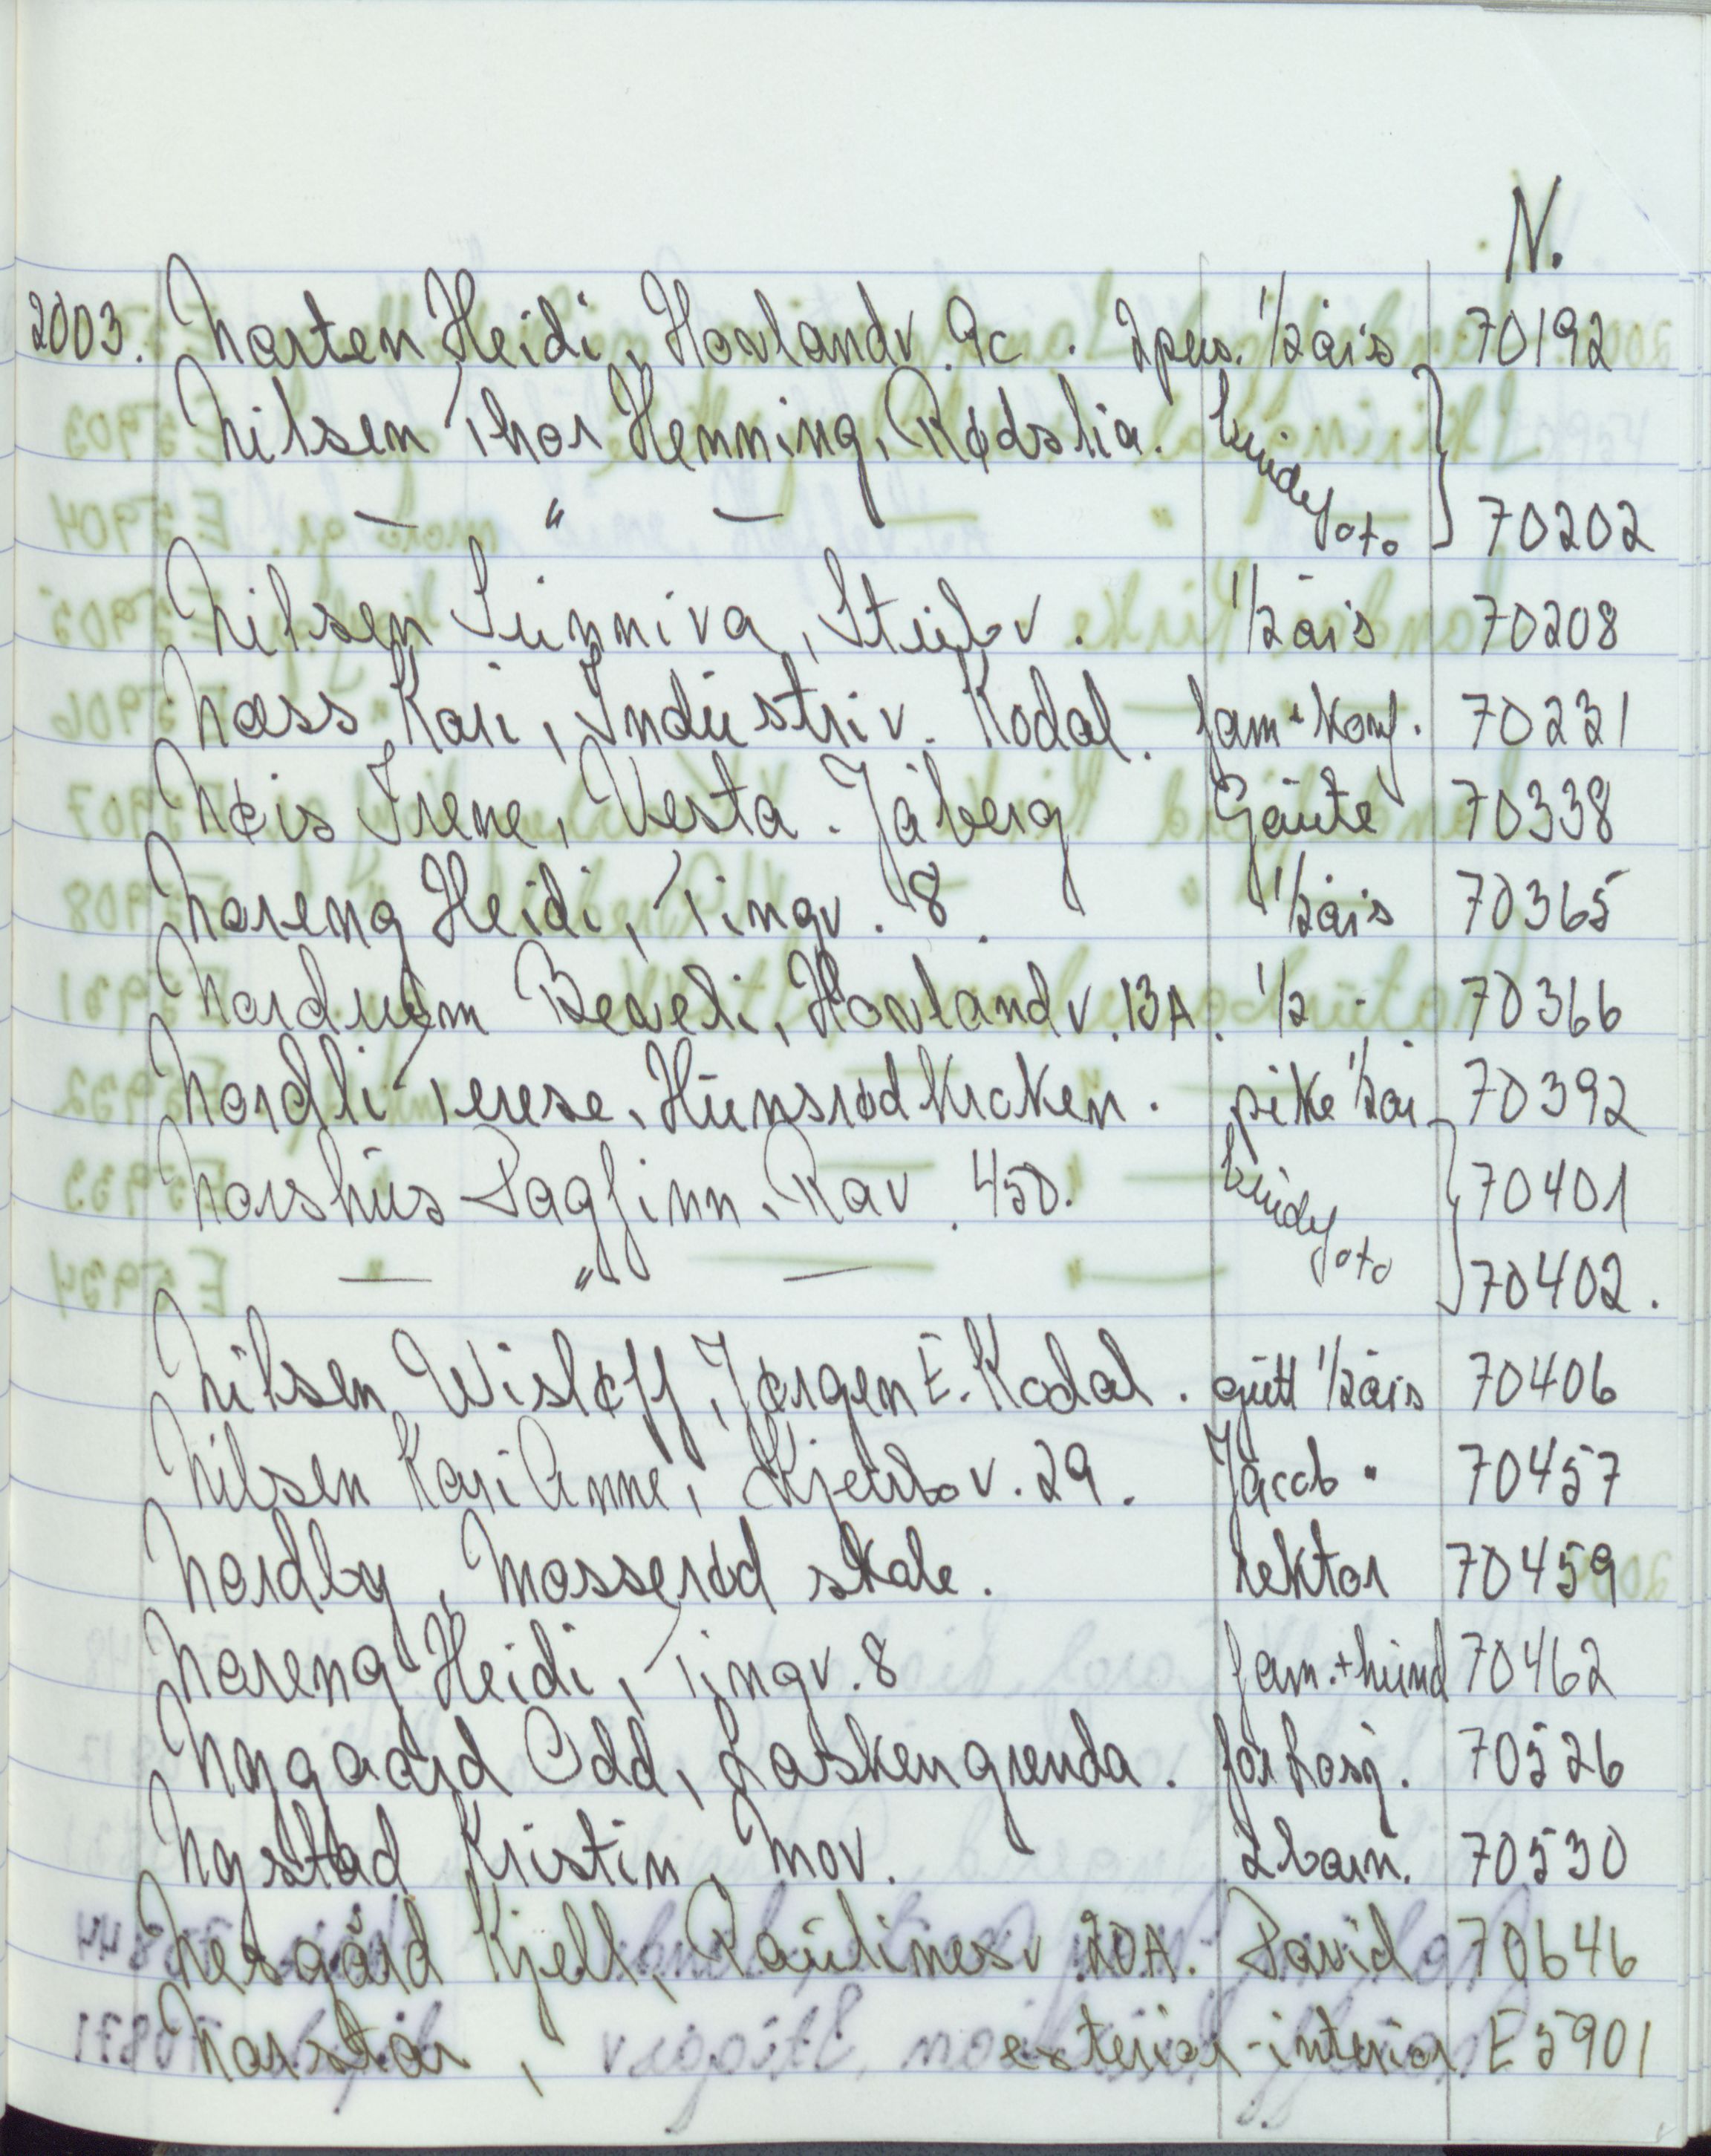 N.
2003. Norten Heidi, Hovlandv. 9c. 2pers. 1/2års 70192
Nilsen Thor Henning, Rødslia. brudefoto
— " — 70202
Nilsen Sunniva, Stubv. 1/2års 70208
Næss Kari, Industriv. Kodal. fam+konf. 70231
Nøis Irene, Vesta. Jåberg Gaute 70338
Noreng Heidi, Tingv. 8. 1/2års 70365
Nordrum Beverli, Hovlandv. 13A. 1/2 - 70366
Nordli Terese, Hunsrødkroken. pike 1/2år 70392
Norshus Dagfinn, Rav. 450. brudefoto 70401
— " — 70402.
Nilsen Wisløff, Jørgen E. Kodal. gutt 1/2års 70406
Nilsen Kari Anne, Skjerbov. 29. Jacob " 70457
Nordby, Mosserød skole. rektor 70459
Noreng Heidi, Tingv. 8 fam.+hund 70462
Nygaard Odd, Laskengrenda. 70526
Nystad Kristin, Mov. 2barn. 70530
Nesgård Kjell, Paulinesv 20A. David 70646
Norstar, exteriør-interiør E5901